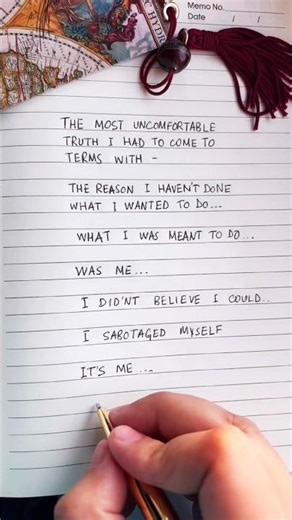 Memo No.
Date / /
THE MOST UNCOMFORTABLE
TRUTH I HAD TO COME TO
TERMS WITH -
THE REASON I HAVEN'T DONE
WHAT I WANTED TO DO...
WHAT I WAS MEANT TO DO...
WAS ME...
I DID'NT BELIEVE I COULD..
I SABOTAGED MYSELF
IT'S ME...